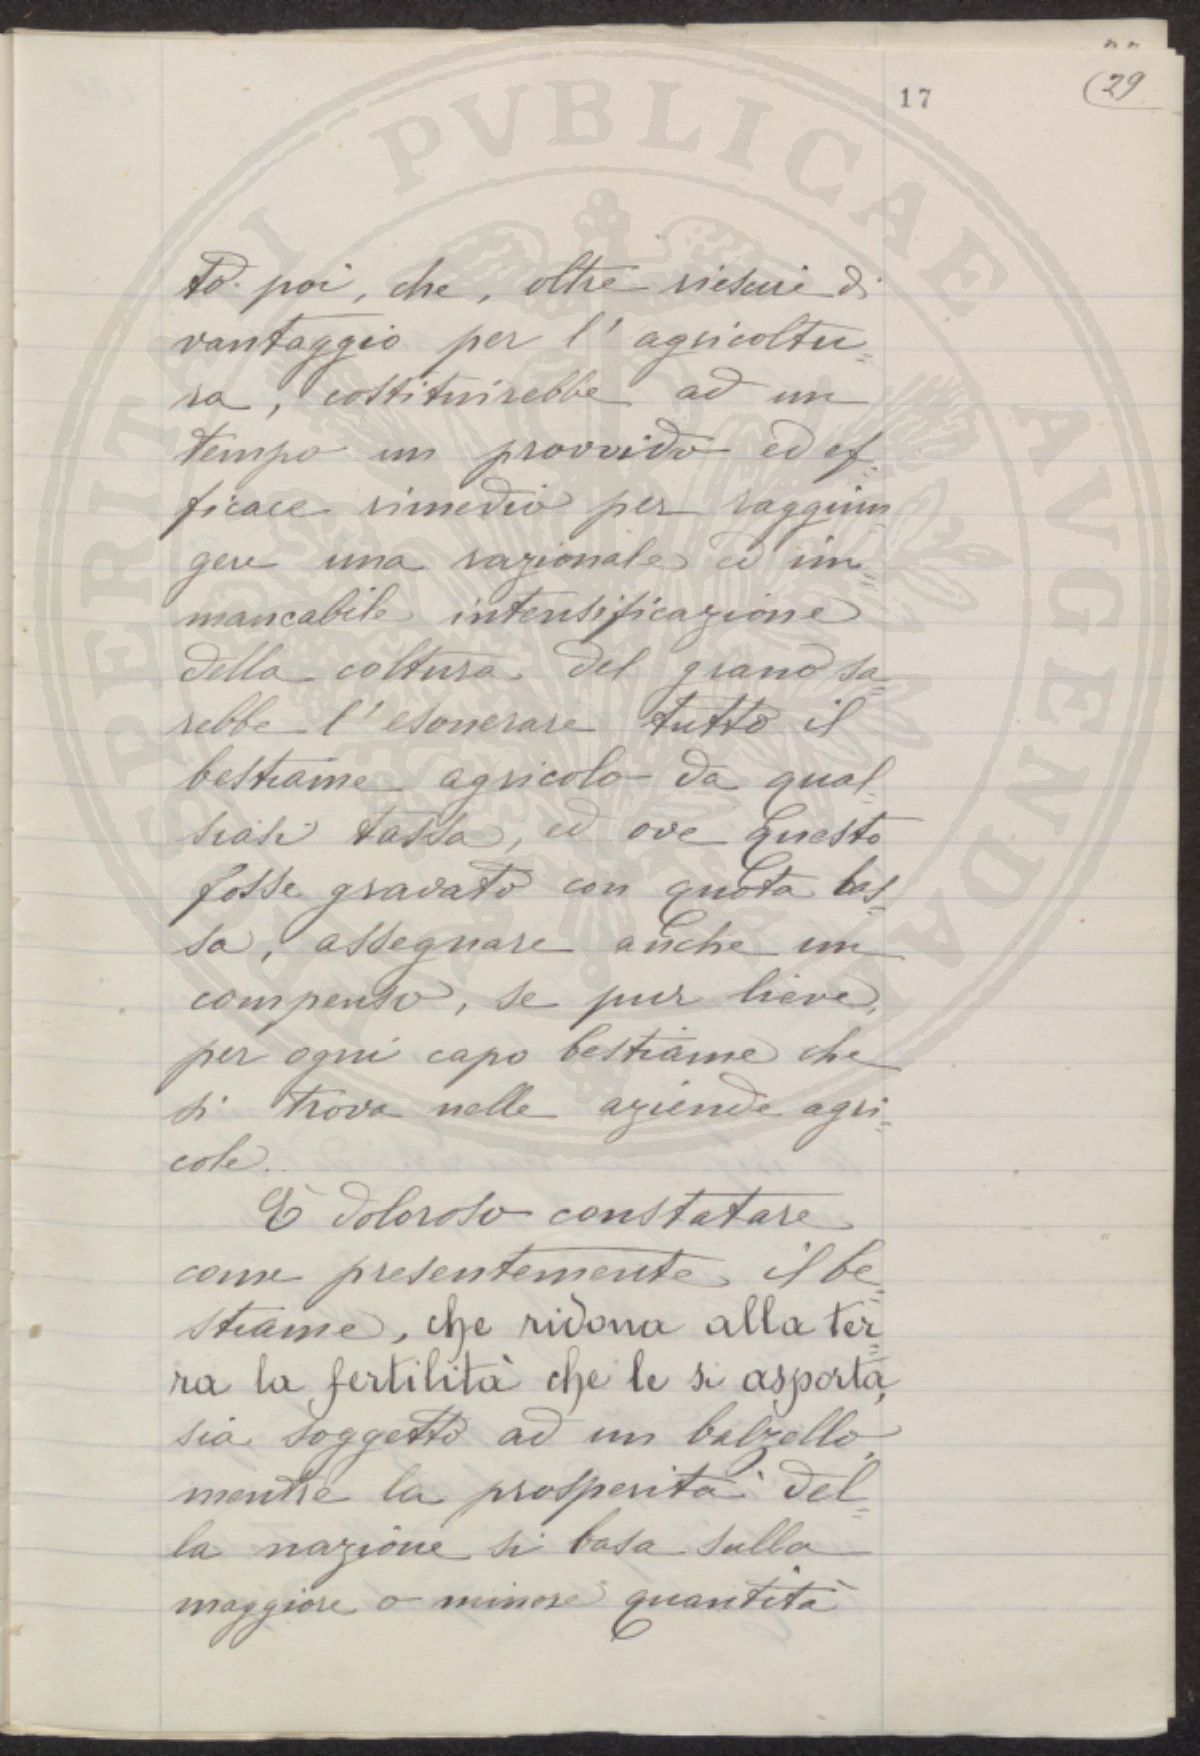 17
29
PROSPERITATI PVBLICAE AVGENDAE
to poi, che, oltre riescire di
vantaggio per l'agricoltu=
ra, costituirebbe ad un
tempo un provvido ed ef=
ficace rimedio per raggiun=
gere una razionale ed im=
mancabile intensificazione
della coltura del grano sa=
rebbe l'esonerare tutto il
bestiame agricolo da qual=
siasi tassa, ed ove questo
fosse gravato con quota bas=
sa, assegnare anche un
compenso, se pur lieve,
per ogni capo bestiame che
si trova nelle aziende agri=
cole.
È doloroso constatare
come presentemente il be=
stiame, che ridona alla ter=
ra la fertilità che le si asporta,
sia soggetto ad un balzello,
mentre la prosperità del=
la nazione si basa sulla
maggiore o minore quantità